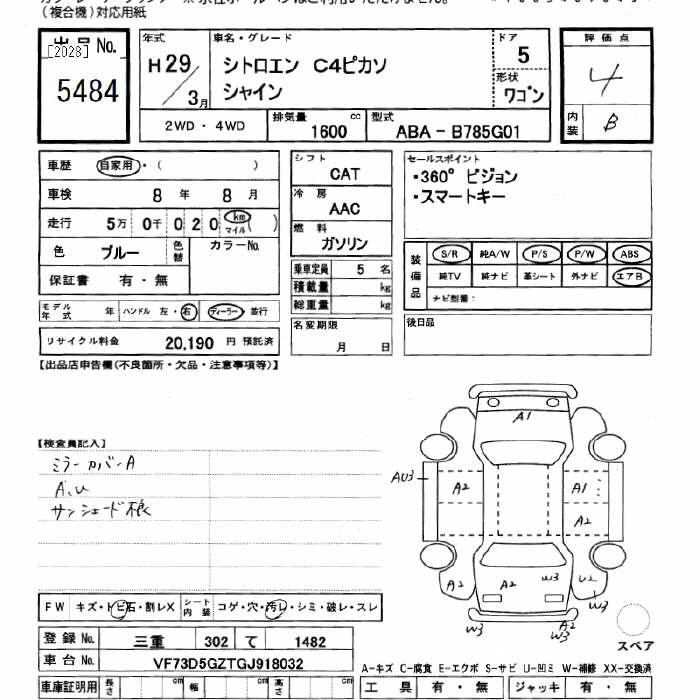 (複合機)対応用紙
出品No.
[2028]
5484
年式
H29/3月
車名・グレード
シトロエン C4ピカソ
シャイン
ドア
5
形状
ワゴン
評価点
4
内装
B
2WD・4WD
排気量
1600 cc
型式
ABA-B785G01
車歴 自家用・( )
車検 8年 8月
走行 5万 0千 0 2 0 km マイル ( )
色 ブルー 色替 カラーNo.
保証書 有・無
モデル年式 年 ハンドル 左・右 ディーラー 並行
リサイクル料金 20,190 円 預託済
シフト
CAT
冷房
AAC
燃料
ガソリン
乗車定員 5 名
積載量 kg
総重量 kg
名変期限
月 日
セールスポイント
・360° ビジョン
・スマートキー
装備品
S/R 純A/W P/S P/W ABS
純TV 純ナビ 革シート 外ナビ エアB
ナビ型番:
後日品
【出品店申告欄(不良箇所・欠品・注意事項等)】
【検査員記入】
ミラーカバーA
A、U
サンシェード根
A1
AU3
A2
A1
A2
A2
A2
W3
U2
W3
W3
A2
W3
スペア
FW キズ・トビ石・割レX シート内装 コゲ・穴・汚レ・シミ・破レ・スレ
登録No. 三重 302 て 1482
車台No. VF73D5GZTGJ918032
車庫証明用 長さ cm 幅 cm 高さ cm
A-キズ C-腐食 E-エクボ S-サビ U-凹ミ W-補修 XX-交換済
工具 有・無 ジャッキ 有・無